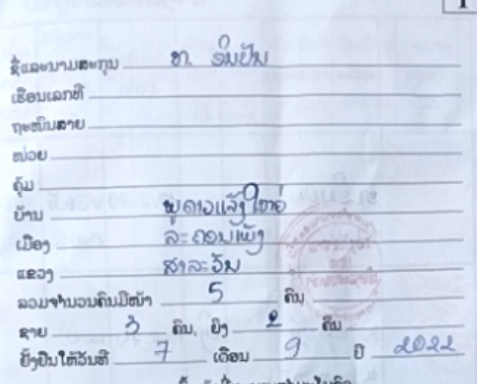 1
ຊື່ແລະນາມສະກຸນ ທ. ຈັນປັນ
ເຮືອນເລກທີ
ຖະໜົນສາຍ
ໜ່ວຍ
ຄຸ້ມ
ບ້ານ ພູດາວແຈ້ງໃຫຍ່
ເມືອງ ລະຄອນເພັງ
ແຂວງ ສາລະວັນ
ລວມຈຳນວນຄົນມີໜ້າ 5 ຄົນ
ຊາຍ 3 ຄົນ, ຍິງ 2 ຄົນ
ຢັ້ງຢືນໃຫ້ວັນທີ 7 ເດືອນ 9 ປີ 2022